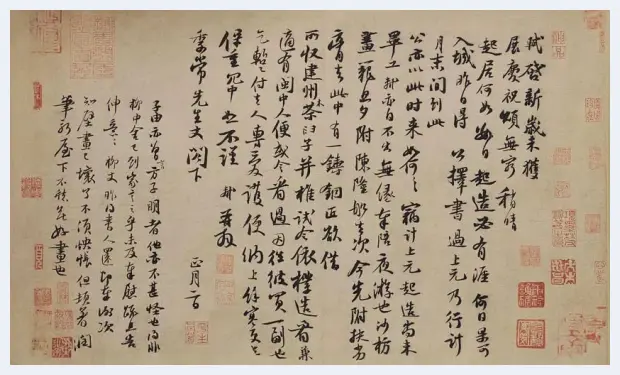 軾啓新歲未獲
展慶祝頌無窮稍晴
起居何如數日起造必有涯何日果可
入城昨日得公擇書過上元乃行計
月末間到此
公亦以此時来如何々竊計上元起造尚未
畢工軾亦自不出無緣奉陪夜遊也沙枋
畫籠旦夕附陳隆舡去次今先附扶劣
膏去此中有一鑄銅匠欲借
所收建州木茶臼子并椎試令依樣造看兼
適有閩中人便或令看過因往彼買一副也
乞蹔付去人專愛護便納上餘寒更乞
保重冗中恕不謹軾再拜
季常先生丈閣下
正月二日
子由亦曾言方子明者他亦不甚怪也得非
柳中舍已到家言之乎未及奉慰疏且告
伸意々柳丈昨得書人還即奉謝次
知壁畫已壞了不須怏悵但頓著潤
筆新屋下不愁無好畫也